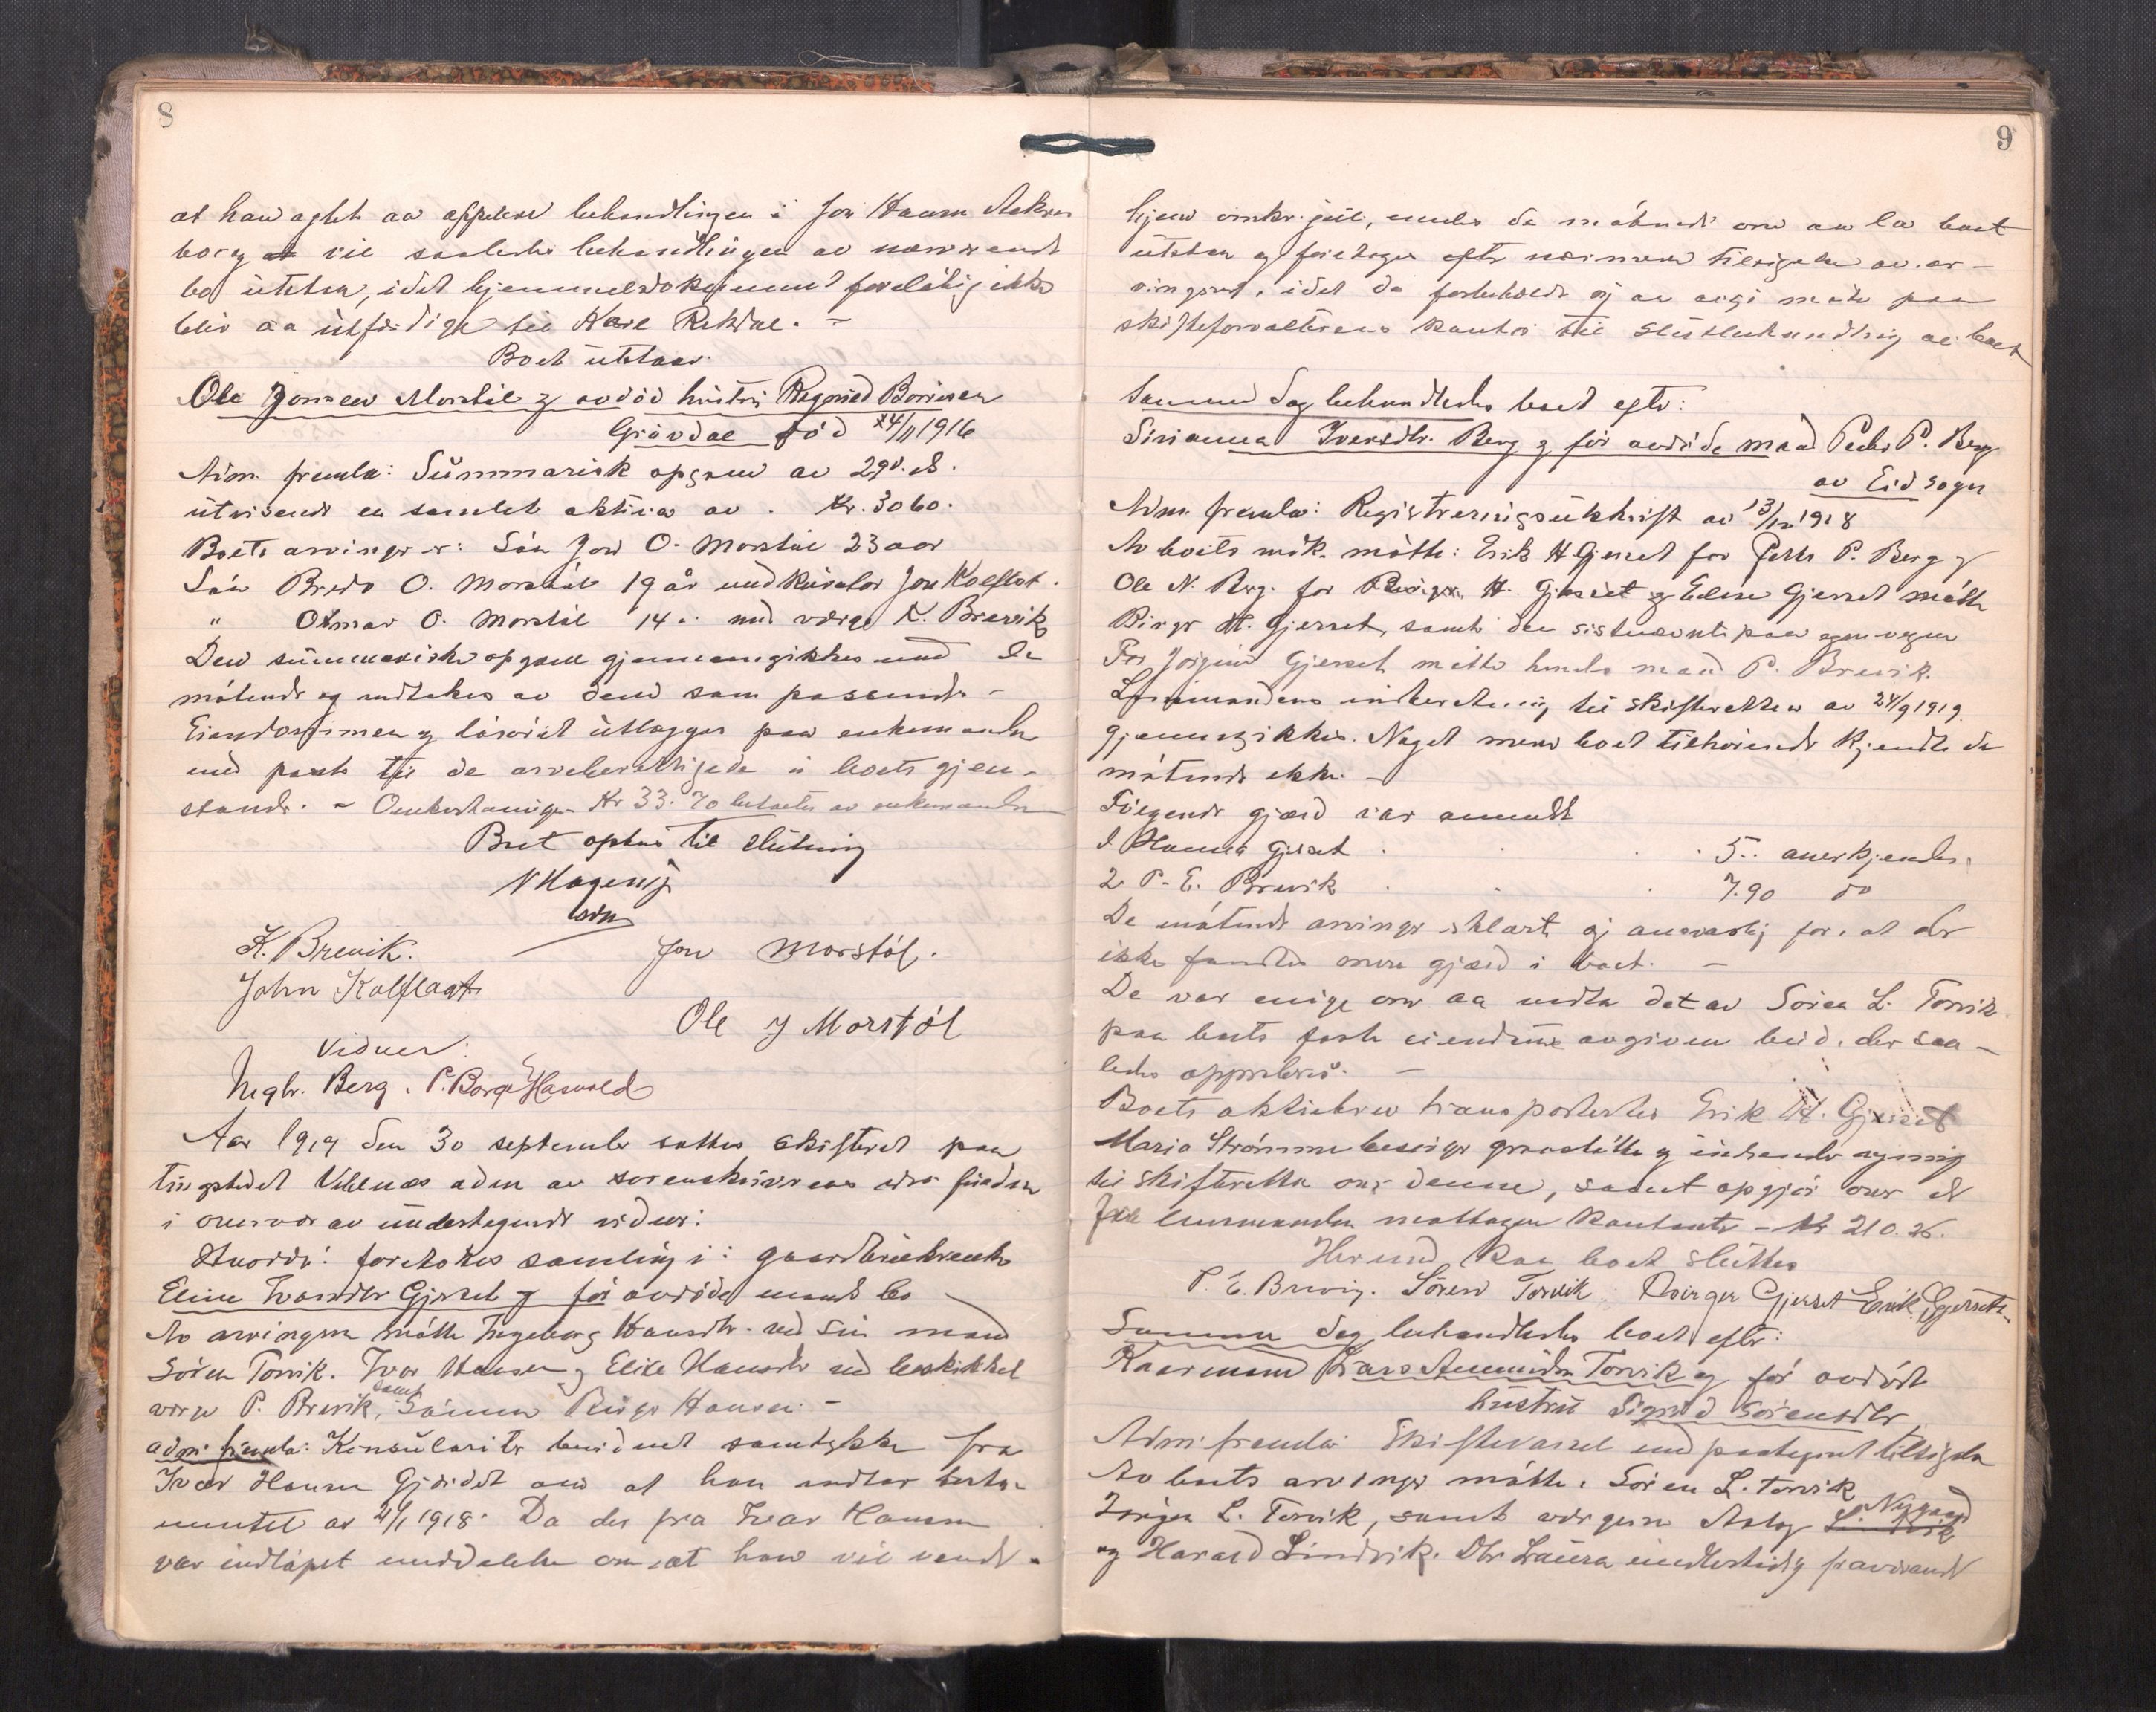 8
at han agtet aa appelere behandlingen i Jon Hansen
bo og at vil saaledes behandlingen av nærværende
bo utstaa, idet hjemmelsdokument foreløbig ikke
blir aa utfærdige til Karl Rekdal. -
Boet utstaar.
Ole Jonsen Morstøl og avdød hustru Ragnild Borrisen
Grøvdal død 24/11 1916
Adm. fremla: Summarisk opgave av 29 d.
utvisende en samlet aktiva av . Kr. 3060.
Boets arvinger er: Søn Jon O. Morstøl 23 aar
Søn Bredo O. Morstøl 19 år med kurator Jon Kolflot.
" Otmar O. Morstøl 14 " med verge K. Brevik
Den summariske opgave gjennemgikkes med de
møtende og vedtokes av dem som passende -
Eiendommen og løsøret utlægges paa enkemanden
med pant til de arveberettigede i boets gjen-
stande. - Omkostninger Kr 33.70 betaltes av enkemanden
Boet optas til slutning
N Hagenes
adm
K. Brevik. Jon Morstøl.
John Kolflaat
Ole J Morstøl
Vidner:
Ingbr. Berg. P. Borge Hasvold
Aar 1919 den 30 september sattes skifteret paa
tingstedet Veblungsnes adm av sorenskriverens
i overvær av undertegnede vidner:
Hvorda: foretokes samling i: gaardbrukerenke
Eline Ivarsdtr Gjerset og før avdøde mands bo
Av arvingene møtte Ingeborg Hansdtr. ved sin mand
Søren Torvik. Ivar Hansen og Elise Hansdtr ved beskikket
verge P. Brevik, samt Sønnen Birger Hansen. -
adm. fremla: Konsulariter bevidnet samtykke fra
Ivar Hansen Gjerdet om at han vedtar testa-
mentet av 4/1 1918. Da der fra Ivar Hansen
var indløpet meddelelse om at han vil vende
9
hjem omkr. jul, enedes de møtende om aa la boet
utstaa og foretages efter nærmere tilsigelse av ar-
vingene, idet de forbeholdt sig at møte paa
skifteforvalterens kontor til sluttbehandling av boet
Samme dag behandledes boet efter:
Sirianna Iversdtr. Berg og før avdøde mand Peder P. Berg
av Eid sogn
Adm. fremla: Registreringsutskrift av 13/12 1918
Av boets møtte: Erik H Gjerset for Petter P. Berg og
Ole N. Berg. for Birger H. Gjerset og Eline Gjerset møtte
Birger H. Gjerset, samt den sistnævnte paa egne vegne
For Jørgine Gjerset møtte hendes mand P. Brevik.
Lensmandens indberetning til skifteretten av 24/9 1919
gjennemgikkes. Noget mere boet tilhørende kjendte de
møtende ikke. -
Følgende gjæld var anmeldt
1 Hanna Gjerset . . . . 5.. anerkjendes.
2 P. E. Brevik . . . 7.90 do
De møtende arvinger erklærte sig ansvarlig for, at der
ikke fandtes mere gjæld i boet. -
De var enige om aa vedta det av Søren L. Torvik
paa boets faste eiendom avgivne bud, der saa-
ledes approberes. -
Boets aktiebrev transporteres Erik H. Gjerset
Maria Strømme besørger gravstøtte og indsender regning
til skifteretten over denne, samt opgjør over de
fra lensmanden mottagne kontante - Kr 210.26.
Hermed kan boet sluttes
P. E. Brevig. Søren Torvik Birger Gjerset Erik Gjersete
Samme dag behandledes boet efter:
Kaarmand Lars Amundsen Torvik og før avdøde
hustru Sigrid Sørensdtr
Adm. fremla: Skiftevarsel med paategnet tilsigelse
Av boets arvinger møtte: Søren L. Torvik
Jørgen L. Torvik, samt vergerne Aslag L. Nygaard
og Harald Lindvik. Dtr Laura imidlertid fraværende